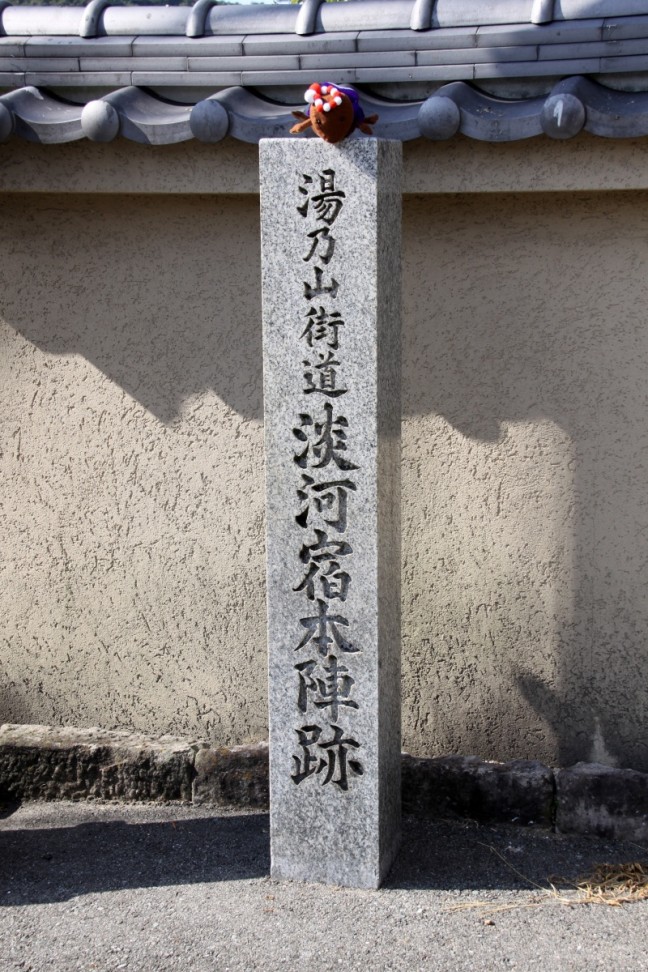 湯乃山街道淡河宿本陣跡